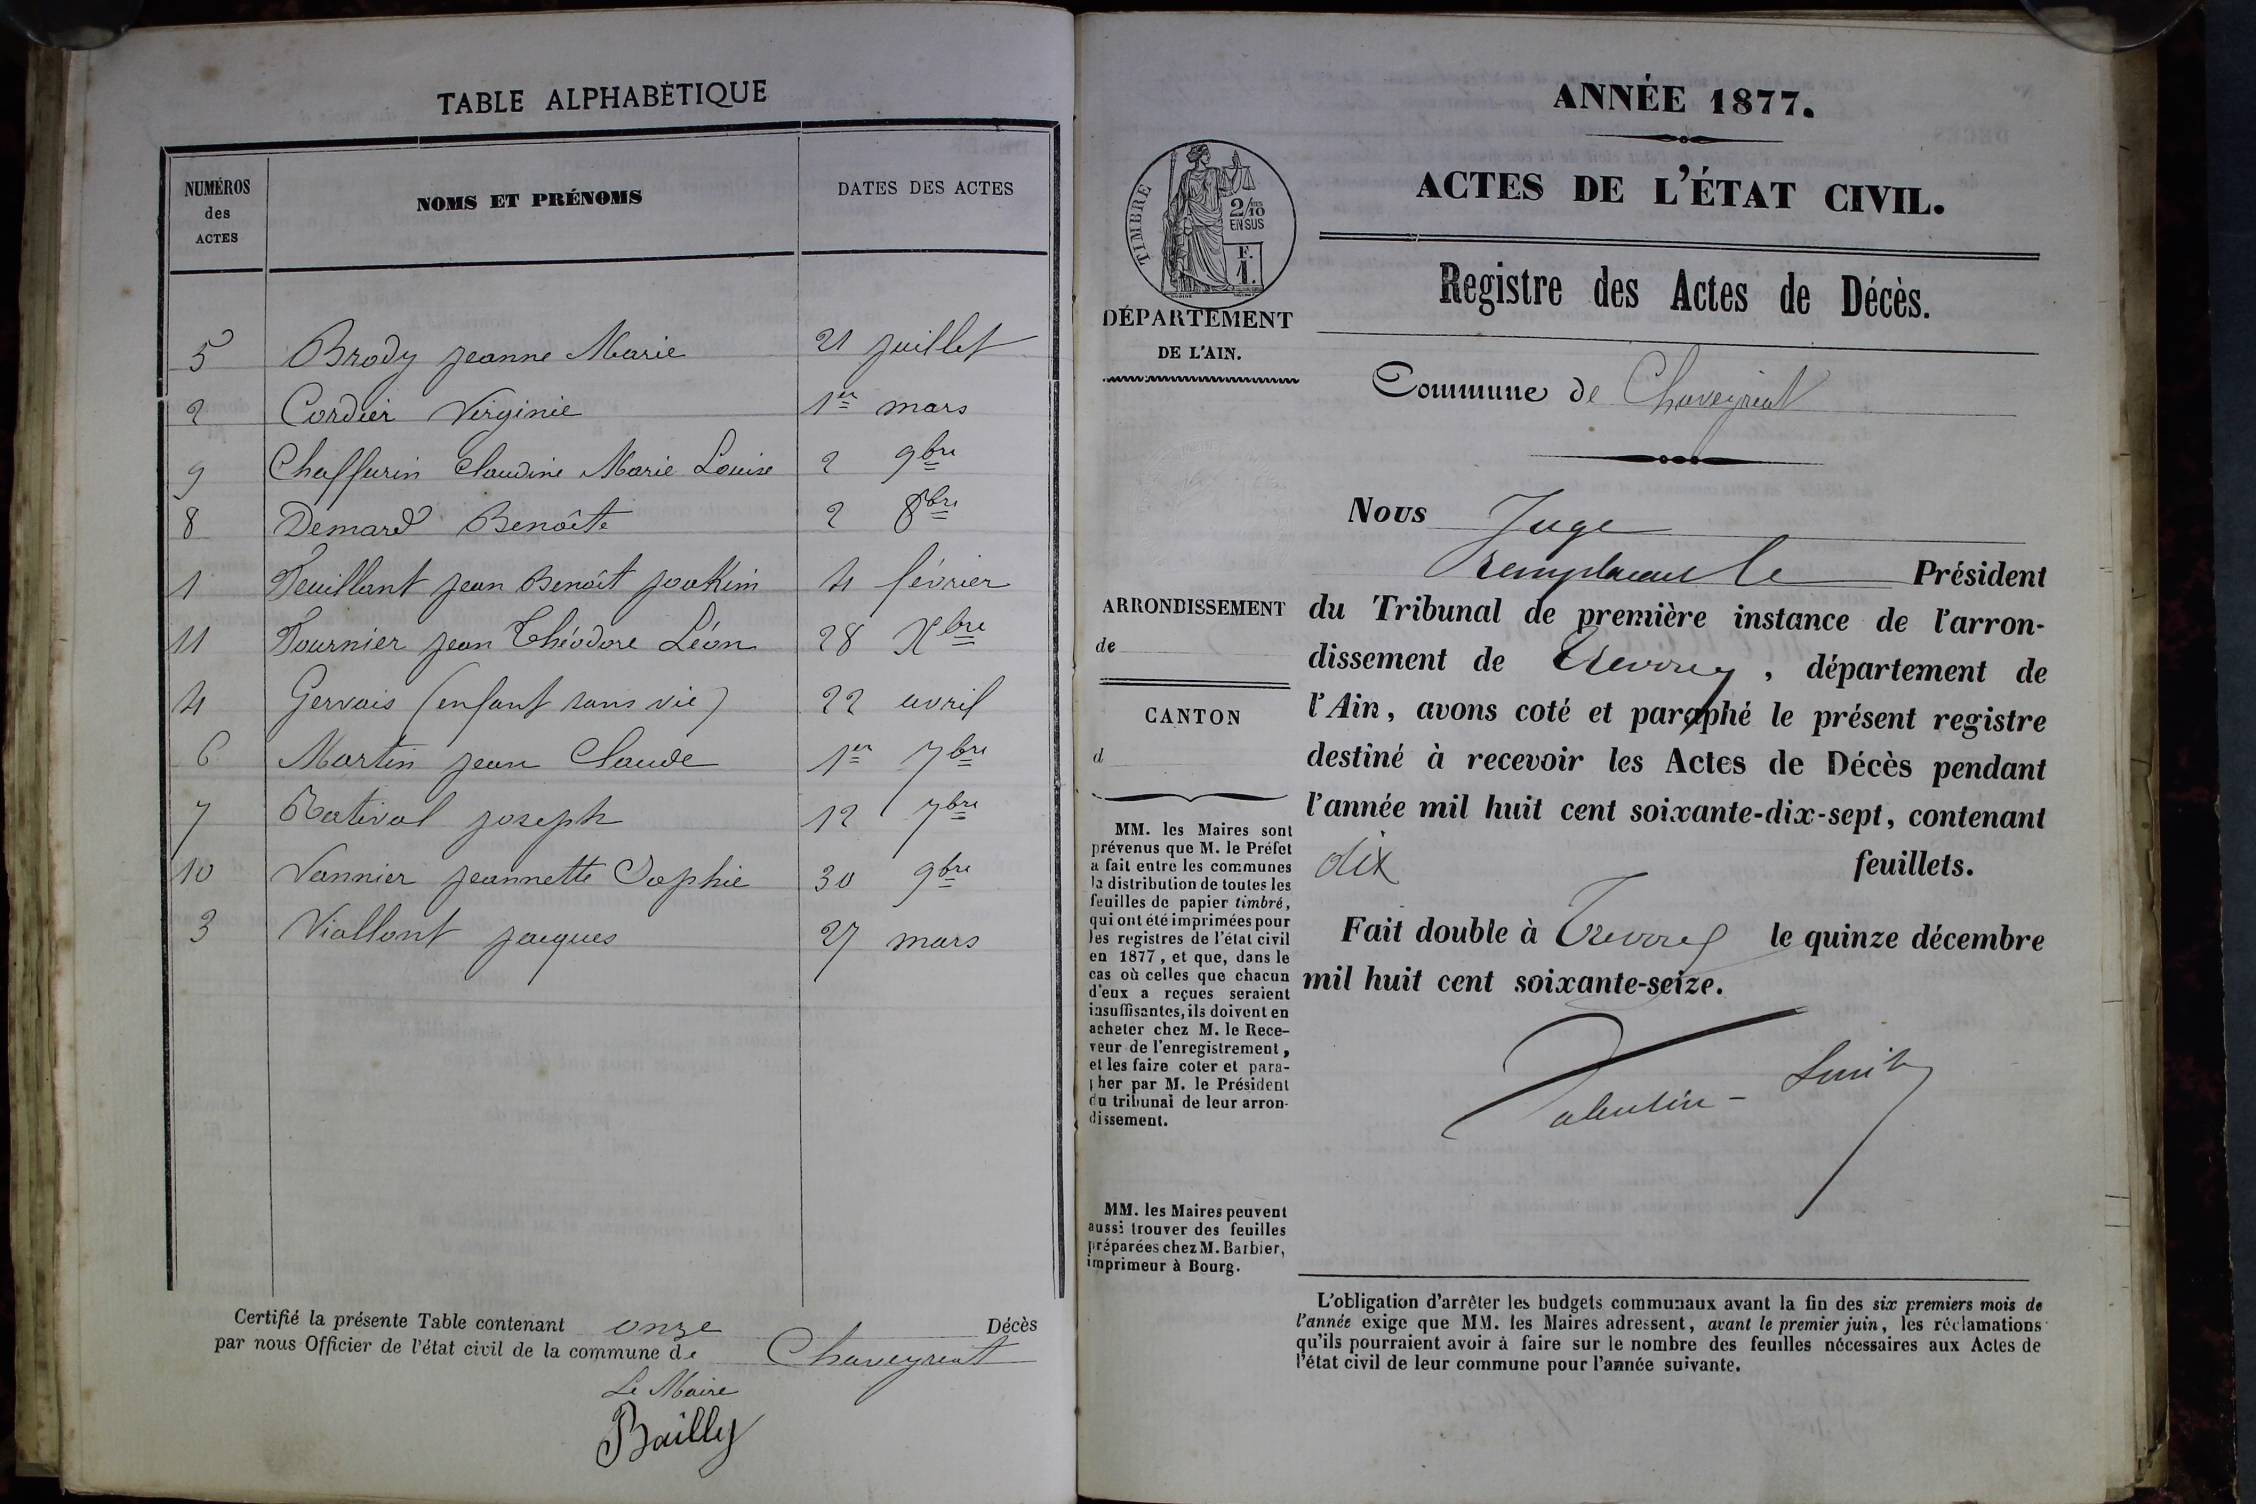 TABLE ALPHABÉTIQUE
NUMÉROS des ACTES NOMS ET PRÉNOMS DATES DES ACTES
5 Brody Jeanne Marie 21 juillet
2 Cordier Virginie 1er mars
9 Chaffurin Claudine Marie Louise 2 9bre
8 Demard Benoîte 2 8bre
1 Feuillant Jean Benoît Joakim 4 février
11 Fournier Jean Théodore Léon 28 Xbre
4 Gervais (enfant sans vie) 22 avril
6 Martin Jean Claude 1er 7bre
7 Rativol Joseph 12 7bre
10 Vannier Jeannette Sophie 30 9bre
3 Viallont Jacques 27 mars
Certifié la présente Table contenant onze Décès
par nous Officier de l'état civil de la commune de Chaveyriat
Le Maire
Bailly
ANNÉE 1877.
ACTES DE L'ÉTAT CIVIL.
Registre des Actes de Décès.
Commune de Chaveyriat
TIMBRE
2/10 EN SUS
F. 1.
DÉPARTEMENT
DE L'AIN.
ARRONDISSEMENT
de
CANTON
d
MM. les Maires sont
prévenus que M. le Préfet
a fait entre les communes
la distribution de toutes les
feuilles de papier timbré,
qui ont été imprimées pour
les registres de l'état civil
en 1877, et que, dans le
cas où celles que chacun
d'eux a reçues seraient
insuffisantes, ils doivent en
acheter chez M. le Rece-
veur de l'enregistrement,
et les faire coter et para-
pher par M. le Président
du tribunal de leur arron-
dissement.
MM. les Maires peuvent
aussi trouver des feuilles
préparées chez M. Barbier,
imprimeur à Bourg.
Nous Juge
remplaçant le Président
du Tribunal de première instance de l'arron-
dissement de Trévoux, département de
l'Ain, avons coté et paraphé le présent registre
destiné à recevoir les Actes de Décès pendant
l'année mil huit cent soixante-dix-sept, contenant
dix feuillets.
Fait double à Trévoux le quinze décembre
mil huit cent soixante-seize.
Valentin-Smith
L'obligation d'arrêter les budgets communaux avant la fin des six premiers mois de
l'année exige que MM. les Maires adressent, avant le premier juin, les réclamations
qu'ils pourraient avoir à faire sur le nombre des feuilles nécessaires aux Actes de
l'état civil de leur commune pour l'année suivante.